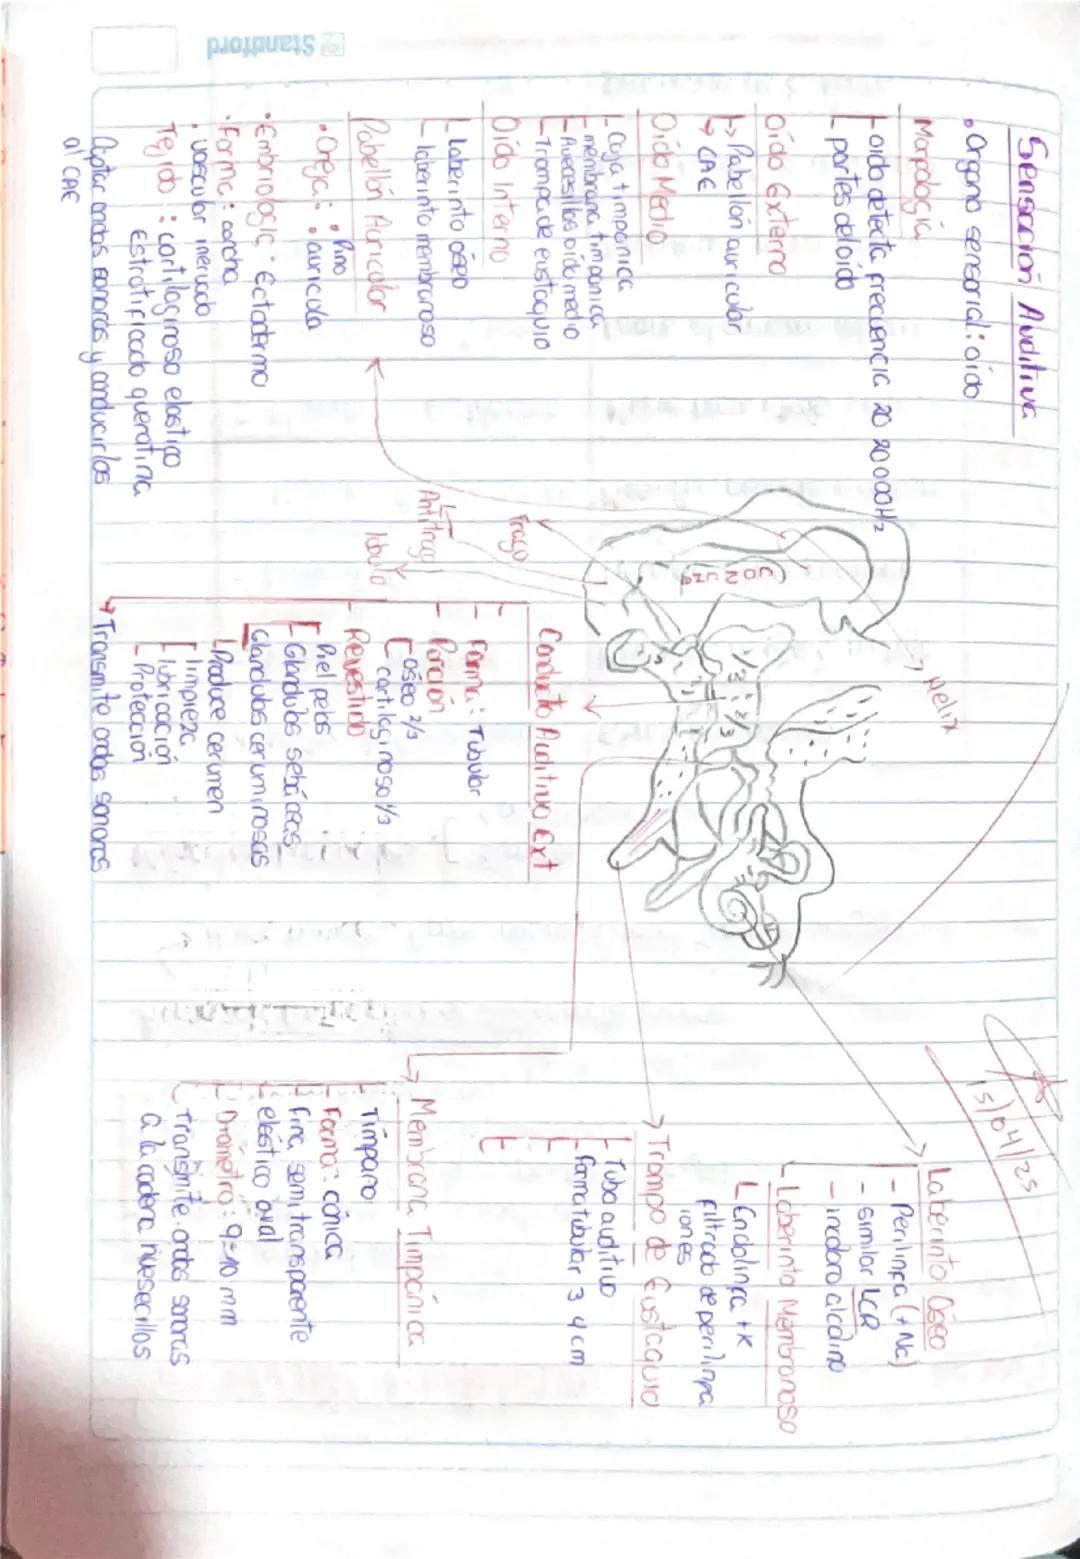 Standford
Sensación Auditiva
• Organo sensorial: oido
Morfología
oido detecta frecuencia 20 20 000Hz
partes del oido
Oido Externo
→ Pabellón auricular
→ CAE
Oido Medio
Caja timpanica
membrana timpanica
Huecesillos oido medio
Trompa de eustaquio
Oido Interno
Laberinto óseo
laberinto membranoso
Pabellón Auricular
• Oreja: • Pino
• auricula
• Embriologic: Ectodermo
• Forma: concha
• vascular inervado
Tejido: cartilaginoso elastico
Estratificado queratina
Captar ondas sonoras y conducirlos
al CAE
Helix
CONCHA
1/3
2/3
trago
Antitrago
lobulo
Conducto Auditivo Ext
Forma: Tubular
Porción
oseo 2/3
cartilaginoso 1/3
Revestido
Piel pelos
Glandulas sebáceas
Glandulas ceruminosas
Produce cerumen
limpieza
lubricación
Protección
→ Transmite ondas sonoras
15/04/25
Laberinto Oseo
- Perilinfa (+ Na)
- similar LCR
- incoloro alcalino
Laberinto Membranoso
Endolinfa +K
filtrado de perilinfa
iones
Trompa de Eustaquio
Tuba auditiva
Forma tubular 3 4 cm
Membrana Timpánica
Timpano
Forma: cónica
fina semitransparente
elástico oval
Diámetro: 9-10 mm
transmite ondas sonoras
a la cadena huesecillos